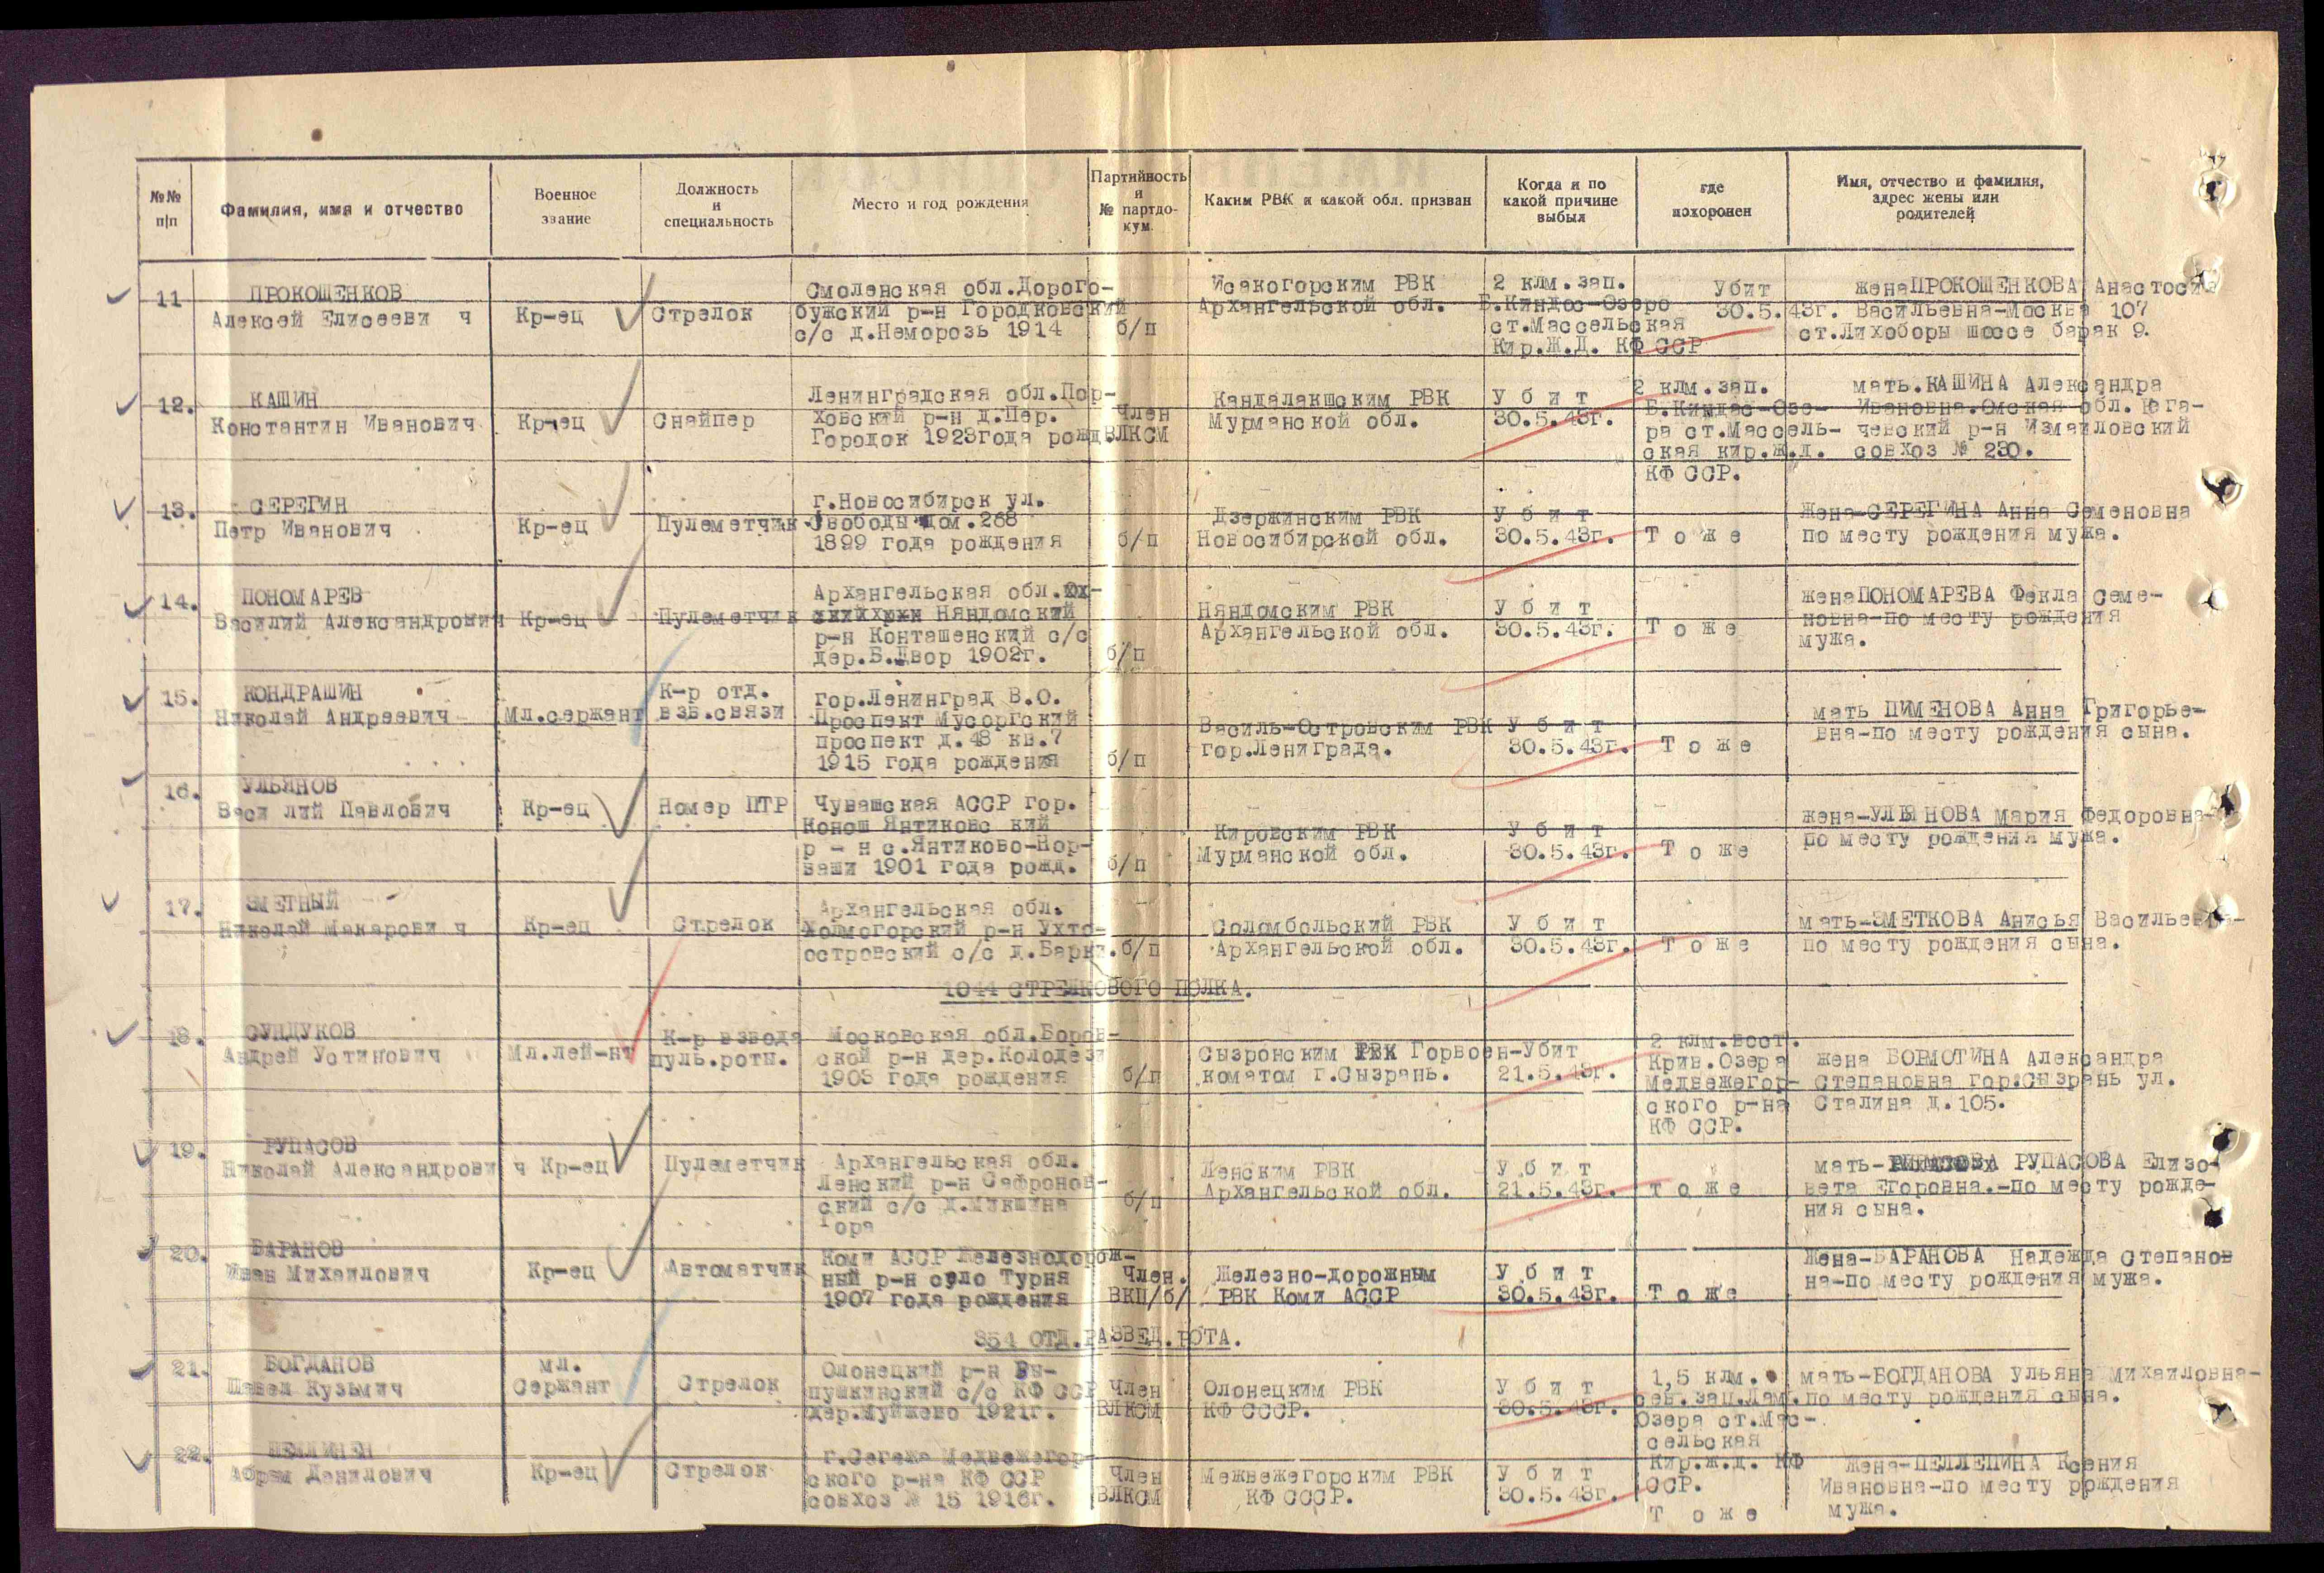 №№ п/п
Фамилия, имя и отчество
Военное звание
Должность и специальность
Место и год рождения
Партийность и № партдокум.
Каким РВК и какой обл. призван
Когда и по какой причине выбыл
где похоронен
Имя, отчество и фамилия, адрес жены или родителей
11
ПРОКОШЕНКОВ
Алексей Елисееви ч
Кр-ец
Стрелок
Смоленская обл.Дорого-
бужский р-н Городковский
с/с д.Неморозь 1914
б/п
Исакогорским РВК
Архангельской обл.
2 клм.зап.
Б.Киндос-Озеро
ст.Массельская
Кир.Ж.Д. КФ ССР
Убит
30.5.43г.
жена ПРОКОШЕНКОВА Анастосия
Васильевна-Москва 107
ст.Лихоборы шоссе барак 9.
12.
КАШИН
Константин Иванович
Кр-ец
Снайпер
Ленинградская обл.Пор-
ховский р-н д.Пер.
Городок 1923года рожд
Член
ВЛКСМ
Кандалакшским РВК
Мурманской обл.
У б и т
30.5.43г.
2 клм.зап.
Б.Киндас-Озе-
ра ст.Массель-
ская кир.ж.д.
КФ ССР.
мать.КАШИНА Александра
Ивановна.Омская обл. Юга-
чевский р-н Измаиловский
совхоз № 230.
13.
СЕРЕГИН
Петр Иванович
Кр-ец
Пулеметчик
г.Новосибирск ул.
Свободы дом.268
1899 года рождения
б/п
Дзержинским РВК
Новосибирской обл.
У б и т
30.5.43г.
Т о ж е
Жена-СЕРЕГИНА Анна Семеновна
по месту рождения мужа.
14.
ПОНОМАРЕВ
Василий Александрович
Кр-ец
Пулеметчик
Архангельская обл.
Няндомский
р-н Конташенский с/с
дер.Б.Двор 1902г.
б/п
Няндомским РВК
Архангельской обл.
У б и т
30.5.43г.
Т о ж е
жена ПОНОМАРЕВА Фекла Семе-
новна-по месту рождения
мужа.
15.
КОНДРАШИН
Николай Андреевич
Мл.сержант
К-р отд.
взв.связи
гор.Ленинград В.О.
Проспект Мусоргский
проспект д.48 кв.7
1915 года рождения
б/п
Василь-Островским РВК
гор.Лениграда.
У б и т
30.5.43г.
Т о ж е
мать ПИМЕНОВА Анна Григорье-
вна-по месту рождения сына.
16.
УЛЬЯНОВ
Васи лий Павлович
Кр-ец
Номер ПТР
Чувашская АССР гор.
Конош Янтиковс кий
р - н с.Янтиково-Нор-
ваши 1901 года рожд.
б/п
Кировским РВК
Мурманской обл.
У б и т
30.5.43г.
Т о ж е
жена-УЛЬЯНОВА Мария Федоровна-
по месту рождения мужа.
17.
ЗМЕТНЫЙ
Николай Макарови ч
Кр-ец
Стрелок
Архангельская обл.
Холмогорский р-н Ухто-
островский с/с д.Барки.
б/п
Соломбольский РВК
Архангельской обл.
У б и т
30.5.43г.
Т о ж е
мать-ЗМЕТКОВА Анисья Васильевна-
по месту рождения сына.
1044 СТРЕЛКОВОГО ПОЛКА.
18.
СУНДУКОВ
Андрей Устинович
Мл.лей-нт
К-р взвода
пуль.роты.
Московская обл.Боров-
ской р-н дер.Колодези
1903 года рождения
б/п
Сызронским РВК Горвоен-
коматом г.Сызрань.
Убит
21.5.43г.
2 клм.вост.
Крив.Озера
Медвежегор-
ского р-на
КФ ССР.
жена БОРМОТИНА Александра
Степановна гор.Сызрань ул.
Сталина д.105.
19.
РУПАСОВ
Николай Александрови ч
Кр-ец
Пулеметчик
Архангельская обл.
Ленский р-н Сафронов-
ский с/с д.Микшина
Гора
б/п
Ленским РВК
Архангельской обл.
У б и т
21.5.43г.
т о ж е
мать- РУПАСОВА Елизо-
вета Егоровна.-по месту рожде-
ния сына.
20.
БАРАНОВ
Иван Михаилович
Кр-ец
Автоматчик
Коми АССР Железнодорож-
ный р-н село Турня
1907 года рождения
Член.
ВКП/б/
Железно-дорожным
РВК Коми АССР
У б и т
30.5.43г.
Т о ж е
Жена-БАРАНОВА Надежда Степанов
на-по месту рождения мужа.
354 ОТД.РАЗВЕД.РОТА.
21.
БОГДАНОВ
Павел Кузьмич
мл.
Сержант
Стрелок
Олонецкий р-н
пушкинский с/с КФ ССР
дер.Муйжево 1921г.
Член
ВЛКСМ
Олонецким РВК
КФ СССР.
У б и т
30.5.43г.
1,5 клм.
сев.зап.Лам.
Озера ст.Мас-
сельская
Кир.ж.д. КФ
ССР.
мать-БОГДАНОВА Ульяна Михаиловна-
по месту рождения сына.
22.
Абрам Данилович
Кр-ец
Стрелок
г.Сегежа Медвежегор-
ского р-на КФ ССР
совхоз № 15 1916г.
Член
ВЛКСМ
Межвежегорским РВК
КФ СССР.
У б и т
30.5.43г.
Т о ж е
Жена-ПЕЛЛЕПИНА Ксения
Ивановна-по месту рождения
мужа.